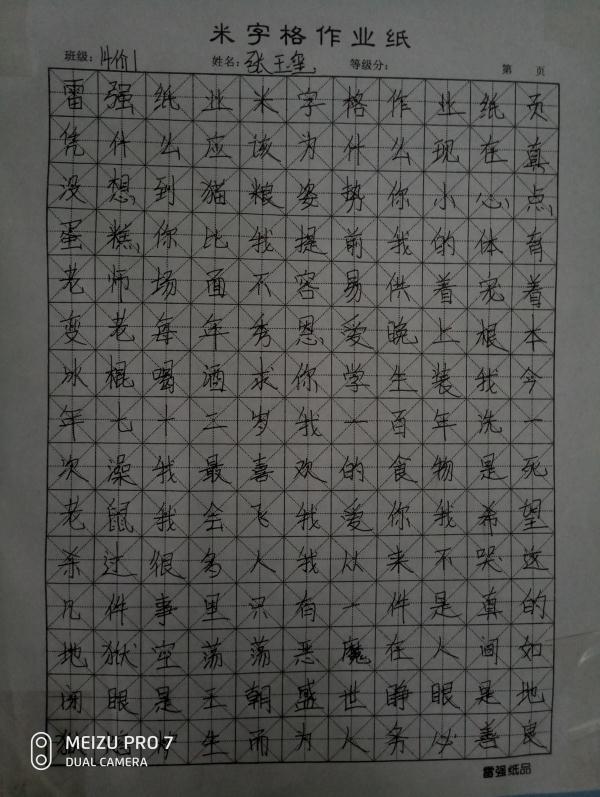 米字格作业纸
班级: 姓名: 张玉 等级分: 第 页
雷强纸业米字格作业纸页
凭什么应该为什么现在真
没想到猫粮姿势你小心点
蛋糕你比我提前我的体育
老师场面不容易供着宠着
变老每年秀恩爱晚上根本
冰棍喝酒求你学生装我今
年七十三岁我一百年洗一
次澡我最喜欢的食物是死
老鼠我会飞我爱你我希望
杀过很多人我从来不哭这
几件事里只有一件是真的
地狱空荡荡恶魔在人间如
闭眼是王朝盛世睁眼是地
狱 生而为人务必善良
雷强纸品
MEIZU PRO 7
DUAL CAMERA